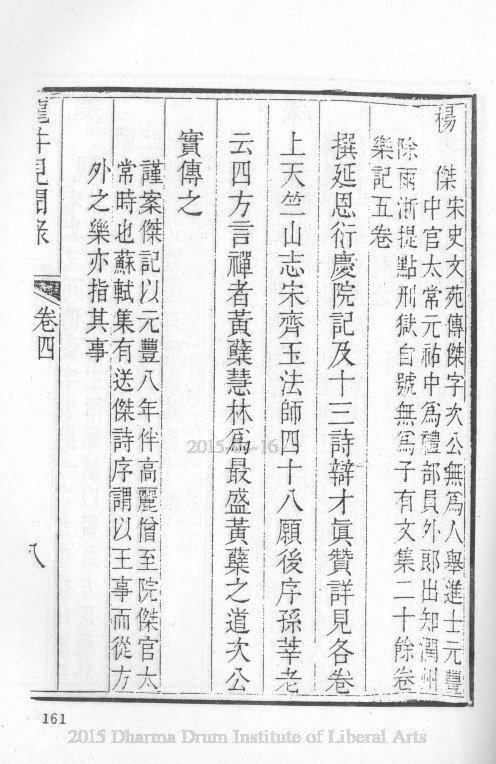 楊　傑宋史文苑傳傑字次公無爲人舉進士元豐
中官太常元祐中爲禮部員外郎出知潤州
除兩浙提點刑獄自號無爲子有文集二十餘卷
樂記五卷
撰延恩衍慶院記及十三詩辯才眞贊詳見各卷
上天竺山志宋齊玉法師四十八願後序孫莘老
云四方言禪者黃蘗慧林爲最盛黃蘗之道次公
實傳之
謹案傑記以元豐八年伴高麗僧至院傑官太
常時也蘇軾集有送傑詩序謂以王事而從方
外之樂亦指其事
龍井見聞錄
卷四
八
161
2015 Dharma Drum Institute of Liberal Arts